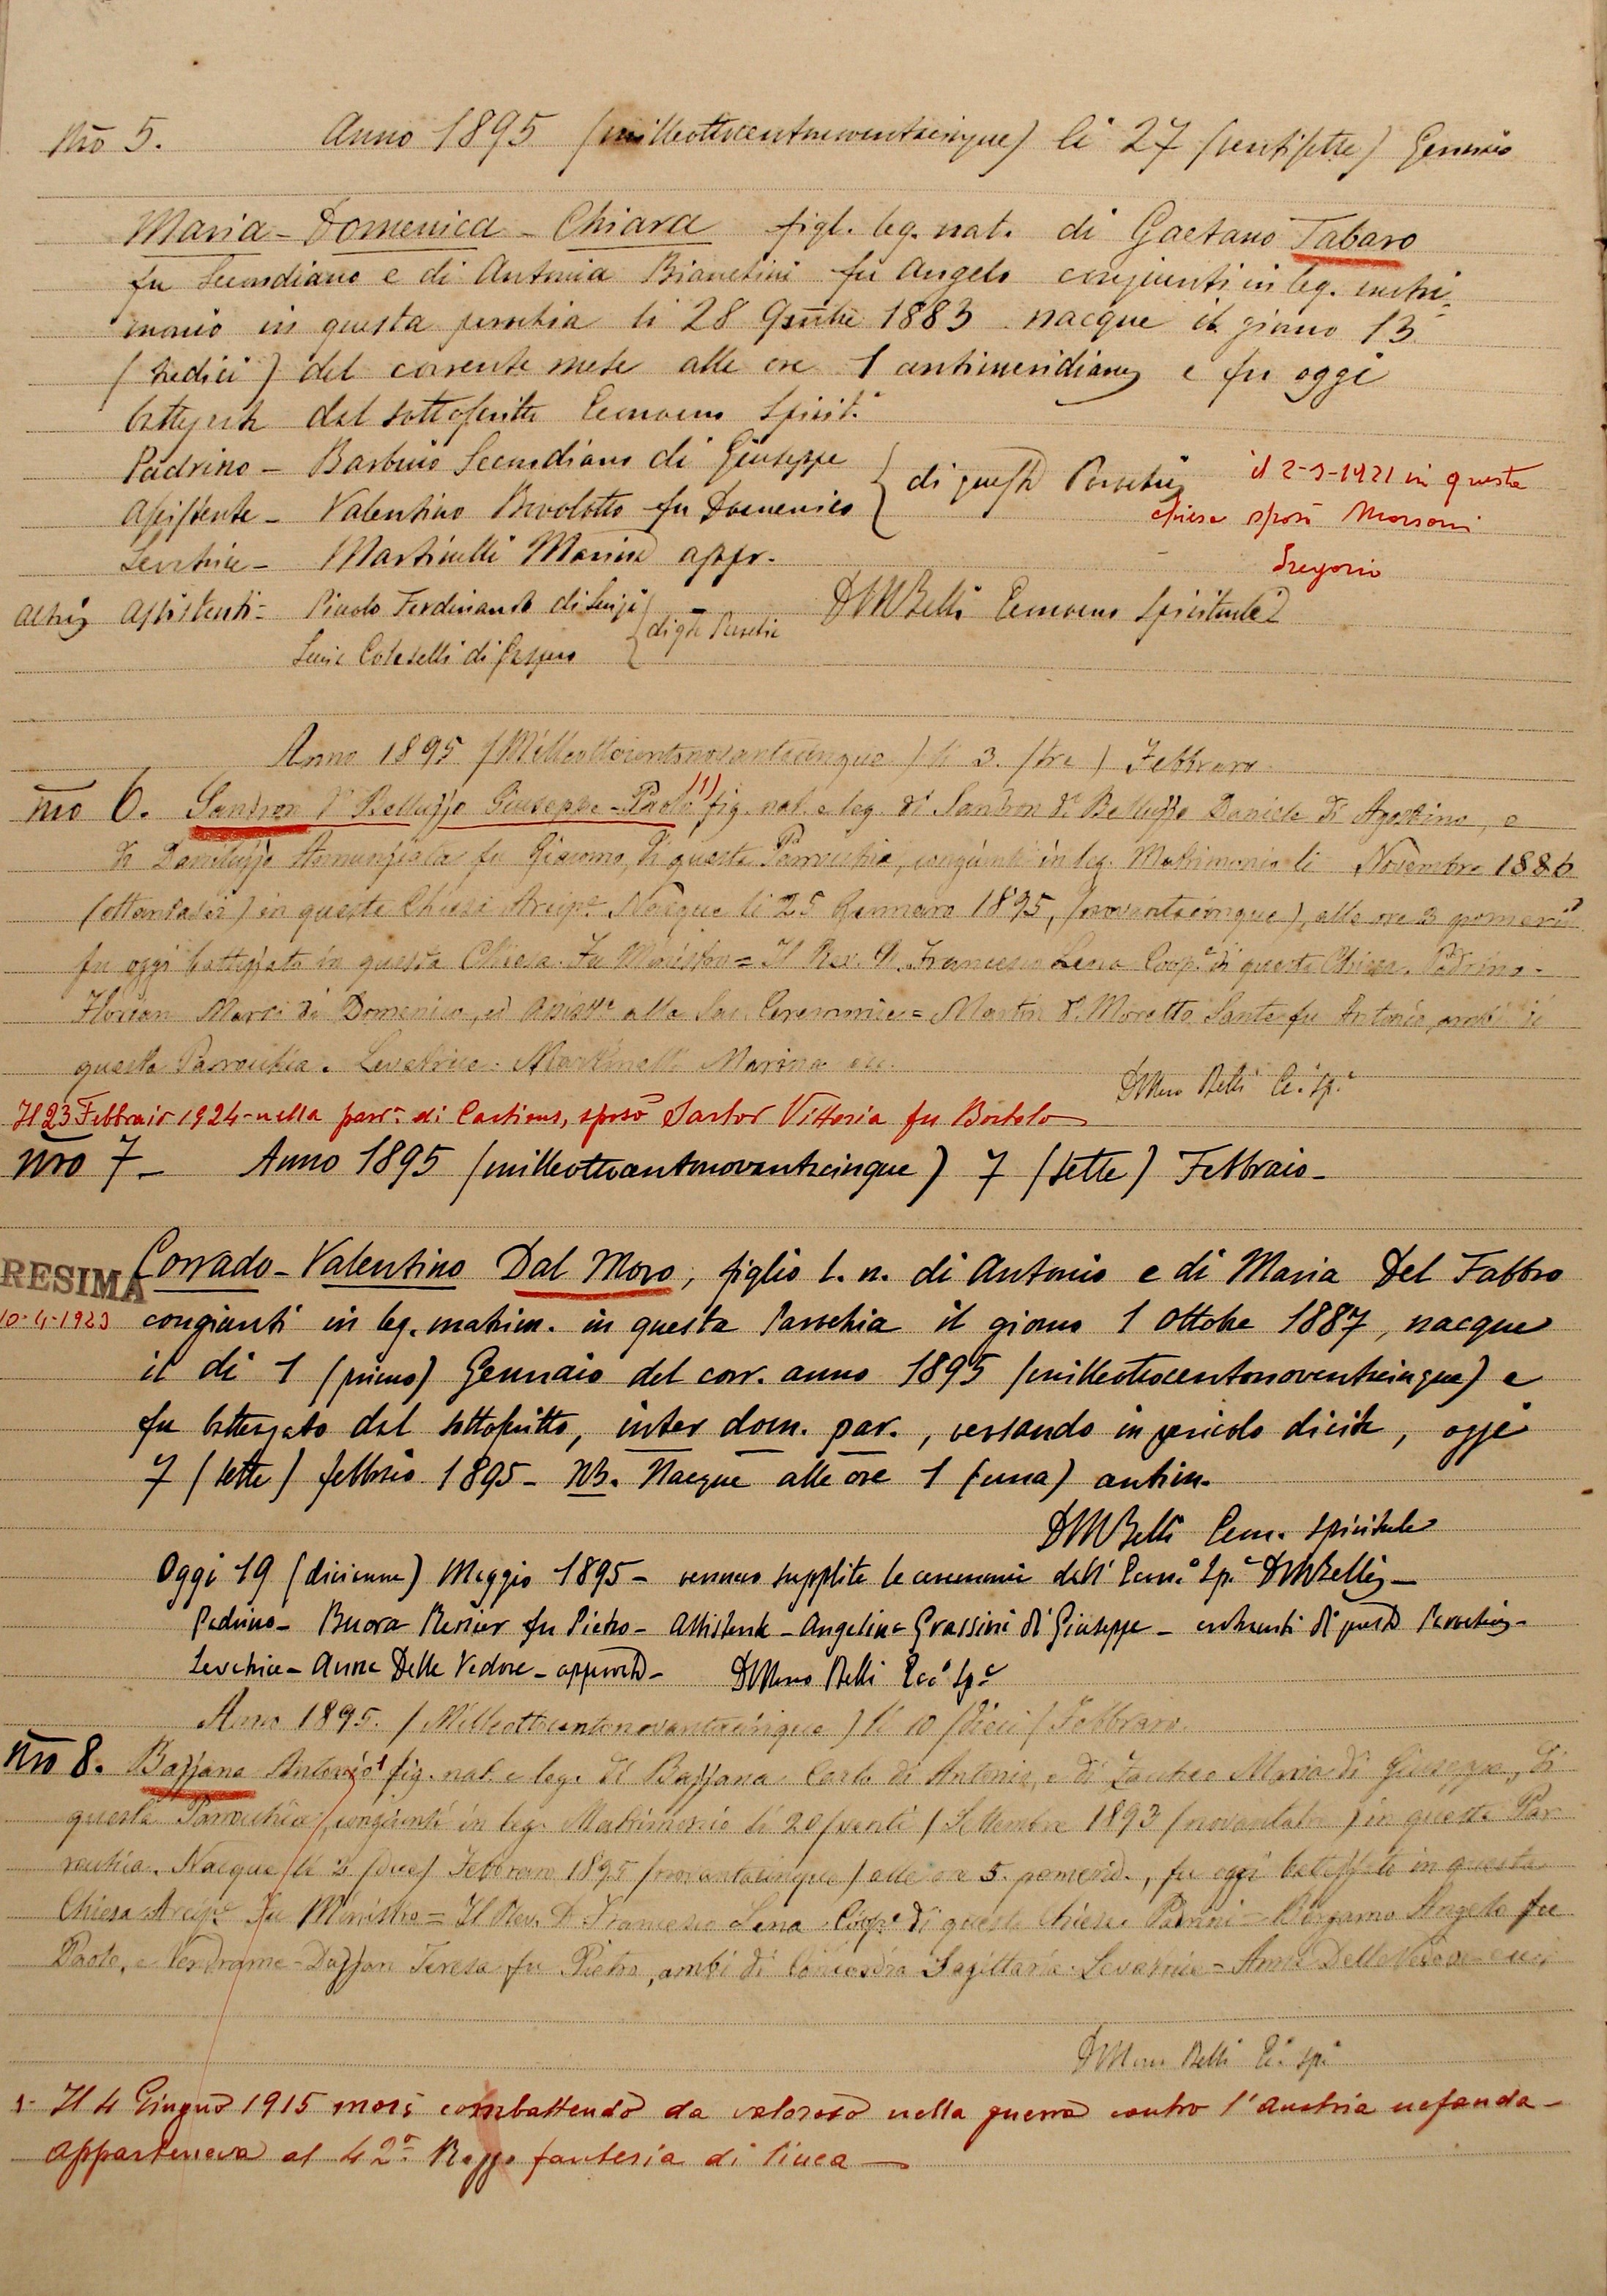 Nro 5. Anno 1895 (milleottocentonovantacinque) li 27 (ventisette) Gennaio
Maria - Domenica - Chiara figl. leg. nat. di Gaetano Tabaro
fu Secondiano e di Antonia Bianchini fu Angelo congiunti in leg. matri-
monio in questa parochia li 28 9mbre 1883 nacque il giorno 13
(tredici) del corrente mese alle ore 1 antimeridiane e fu oggi
battezzata dal sottoscritto Economo Spirit.e
Padrino - Barbuio Secondiano di Giuseppe
Assistente - Valentino Bravolotto fu Domenico } di questa Parochia
Levatrice - Martinelli Marina appr.
il 2-3-1921 in questa
chiesa sposò Morsoni
Gregorio
Altri Assistenti - Piccolo Ferdinando di Luigi
Luia Coleselli di } di qta Parochia
DMBelli Economo Spirituale
Anno 1895 (Milleottocentonovantacinque) li 3. (tre) Febbraro
Nro 6. Sandron d.o Belluzzo Giuseppe - Paolo (1) fig. nat. e leg. di Sandron d.o Belluzzo Daniele di Agostino, e
di Daneluzzo Annunziata fu Giacomo, di questa Parrochia, congiunti in leg. Matrimonio li Novembre 1886
(ottantasei) in questa Chiesa Arcip.e Nacque li 25 Gennaro 1895, (novantacinque), alle ore 3 pomerid.
fu oggi battezzato in questa Chiesa. Fu Ministro = Il Rev. D. Francesco Lena Coop.e di questa Chiesa. Padrino -
Florian Marco di Domenico, ed Assist.e alla Sac. Ceremonia = Martin d.o Moretto Sante fu Antonio, ambi di
questa Parrochia. Levatrice - Martinelli Marina
DMarco Belli Ec.o Sp.e
Il 23 Febbraio 1924 - nella parr. di Castions, sposò Sartor Vittoria fu Bortolo
Nro 7 - Anno 1895 (milleottocentonovantacinque) 7 (sette) Febbraio -
Corrado - Valentino Dal Moro, figlio l. n. di Antonio e di Maria Del Fabbro
RESIMA
10-4-1923 congiunti in leg. matrim. in questa Parochia il giorno 1 Ottobre 1887, nacque
il dì 1 (primo) Gennaio del corr. anno 1895 (milleottocentonovantacinque) e
fu battezzato dal sottoscritto, inter dom. par., versando in pericolo di vita, oggi
7 (sette) febbraio 1895 - NB. Nacque alle ore 1 (una) antim.
DMBelli Econ. Spirituale
Oggi 19 (dicianove) Maggio 1895 - vennero supplite le ceremonie dall' Econ.o Sp.e DMBelli -
Padrino - Buora Renier fu Pietro - Assistente - Angelina Grassini di Giuseppe - entrambi di questa Parochia -
Levatrice - Anna Delle Vedove - approvata - DMarco Belli Eco.o Sp.e
Anno 1895. (Milleottocentonovantacinque) li 10 (dieci) Febbraro.
Nro 8. Bazzana Antonio 1 fig. nat. e leg. di Bazzana Carlo di Antonio, e di Zaccheo Maria di Giuseppe, di
questa Parrochia, congiunti in leg. Matrimonio li 20 (venti) Settembre 1893 (novantatre) in questa Par-
rochia. Nacque li 2 (due) Febbraro 1895 (novantacinque) alle ore 5. pomerid., fu oggi battezzato in questa
Chiesa Arcip.e Fu Ministro = Il Rev. D. Francesco Lena Coop.e di questa Chiesa. Padrini - Bergamo Angelo fu
Paolo, e Vendrame - Dazzan Teresa fu Pietro, ambi di Concordia Sagittaria. Levatrice = Anna Delle Vedove
DMarco Belli Ec.o Sp.e
1 - Il 4 Giugno 1915 morì combattendo da valoroso nella guerra contro l'Austria nefanda -
apparteneva al 42.o Regg.o fanteria di linea -